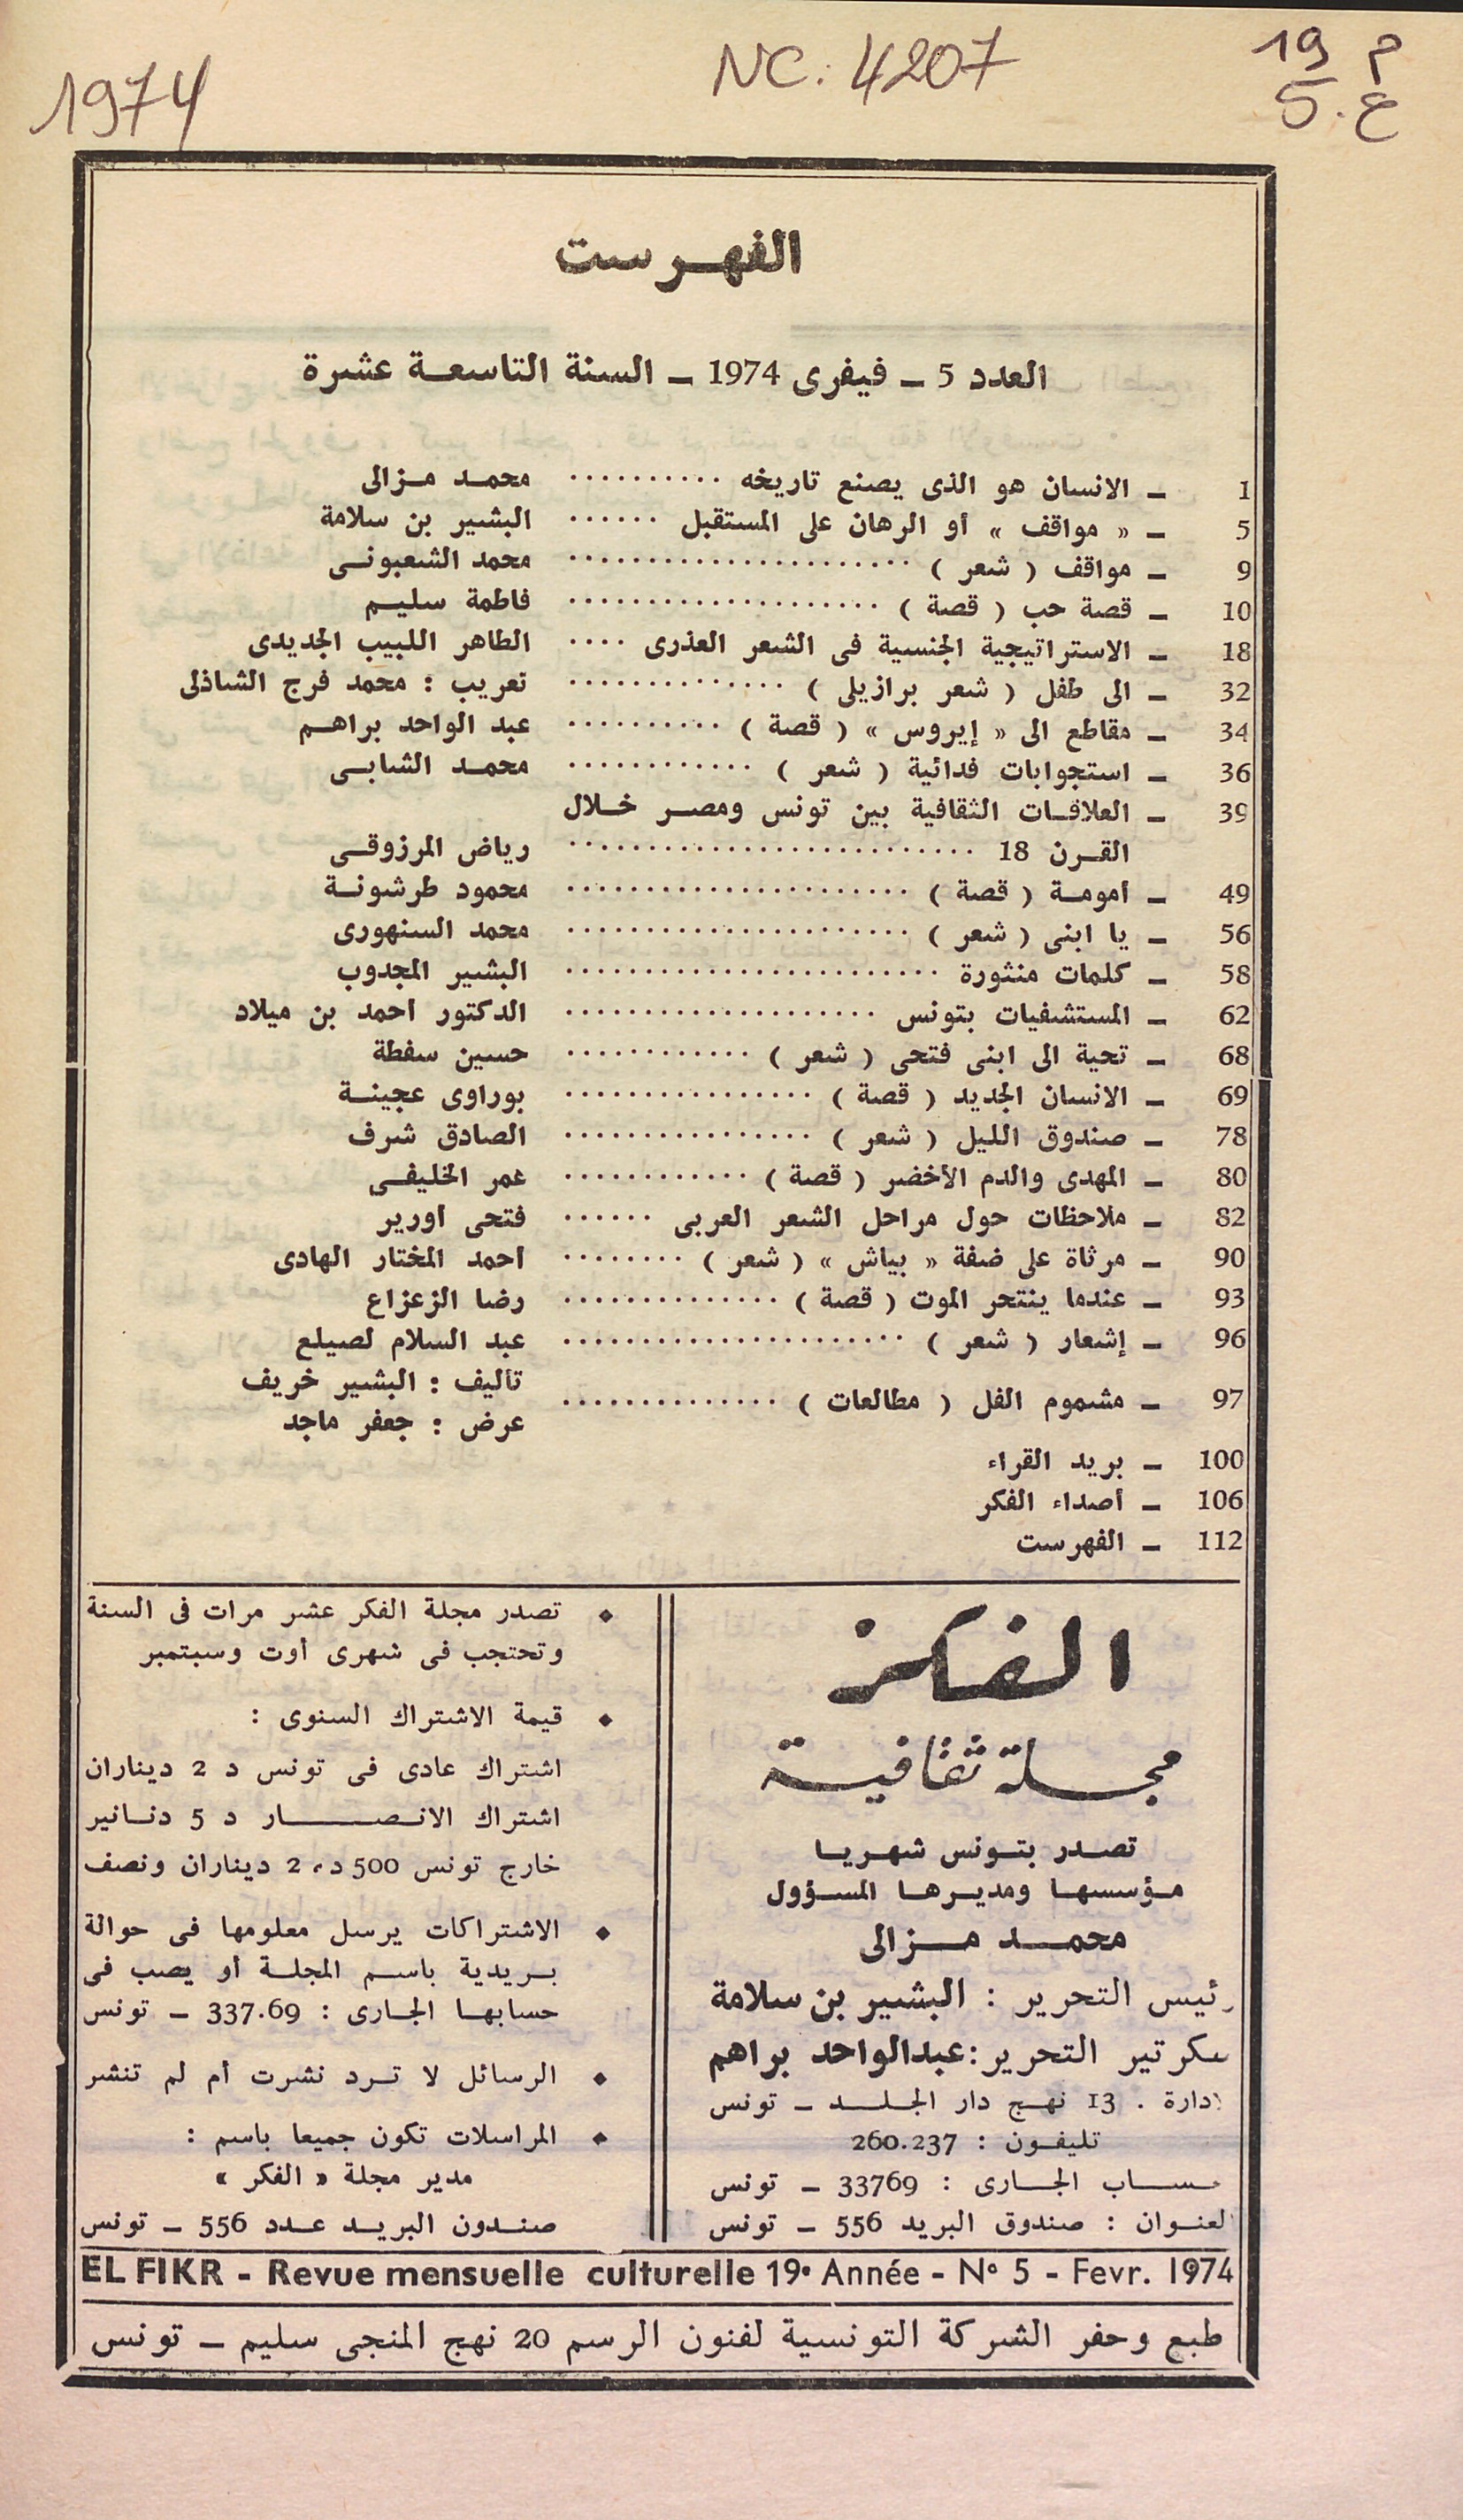 1974
NC. 4207
19 م
5 . ع
الفهرست
العدد 5 — فيفرى 1974 — السنة التاسعة عشرة
1 — الانسان هو الذى يصنع تاريخه .......... محمد مزالى
5 — « مواقف » أو الرهان على المستقبل ...... البشير بن سلامة
9 — مواقف ( شعر ) ...................... محمد الشعبونى
10 — قصة حب ( قصة ) .................... فاطمة سليم
18 — الاستراتيجية الجنسية فى الشعر العذرى .... الطاهر اللبيب الجديدى
32 — الى طفل ( شعر برازيلى ) .............. تعريب : محمد فرج الشاذلى
34 — مقاطع الى « إيروس » ( قصة ) .......... عبد الواحد براهم
36 — استجوابات فدائية ( شعر ) ............ محمد الشابى
39 — العلاقات الثقافية بين تونس ومصر خلال
القرن 18 .......................... رياض المرزوقى
49 — أمومة ( قصة ) ...................... محمود طرشونة
56 — يا ابنى ( شعر ) ...................... محمد السنهورى
58 — كلمات منثورة ........................ البشير المجدوب
62 — المستشفيات بتونس .................... الدكتور احمد بن ميلاد
68 — تحية الى ابنى فتحى ( شعر ) ............ حسين سفطة
69 — الانسان الجديد ( قصة ) ................ بوراوى عجينة
78 — صندوق الليل ( شعر ) ................ الصادق شرف
80 — المهدى والدم الأخضر ( قصة ) ............ عمر الخليفى
82 — ملاحظات حول مراحل الشعر العربى ...... فتحى اورير
90 — مرثاة على ضفة « بياش » ( شعر ) ........ احمد المختار الهادى
93 — عندما ينتحر الموت ( قصة ) .............. رضا الزعزاع
96 — إشعار ( شعر ) ...................... عبد السلام لصيلع
97 — مشموم الفل ( مطالعات ) .............. تأليف : البشير خريف
عرض : جعفر ماجد
100 — بريد القراء
106 — أصداء الفكر
112 — الفهرست
الفكر
مجلة ثقافية
تصدر بتونس شهريا
مؤسسها ومديرها المسؤول
محمد مزالى
رئيس التحرير : البشير بن سلامة
سكرتير التحرير : عبدالواحد براهم
لادارة . 13 نهج دار الجلد — تونس
تليفون : 260.237
حساب الجارى : 33769 — تونس
لعنوان : صندوق البريد 556 — تونس
◆ تصدر مجلة الفكر عشر مرات فى السنة
وتحتجب فى شهرى أوت وسبتمبر
◆ قيمة الاشتراك السنوى :
اشتراك عادى فى تونس د 2 ديناران
اشتراك الانصار د 5 دنانير
خارج تونس 500 د، 2 ديناران ونصف
◆ الاشتراكات يرسل معلومها فى حوالة
بريدية باسم المجلة أو يصب فى
حسابها الجارى : 337.69 — تونس
◆ الرسائل لا ترد نشرت أم لم تنشر
◆ المراسلات تكون جميعا باسم :
مدير مجلة « الفكر »
صندون البريد عدد 556 — تونس
EL FIKR - Revue mensuelle culturelle 19e Année - N° 5 - Fevr. 1974
طبع وحفر الشركة التونسية لفنون الرسم 20 نهج المنجى سليم — تونس